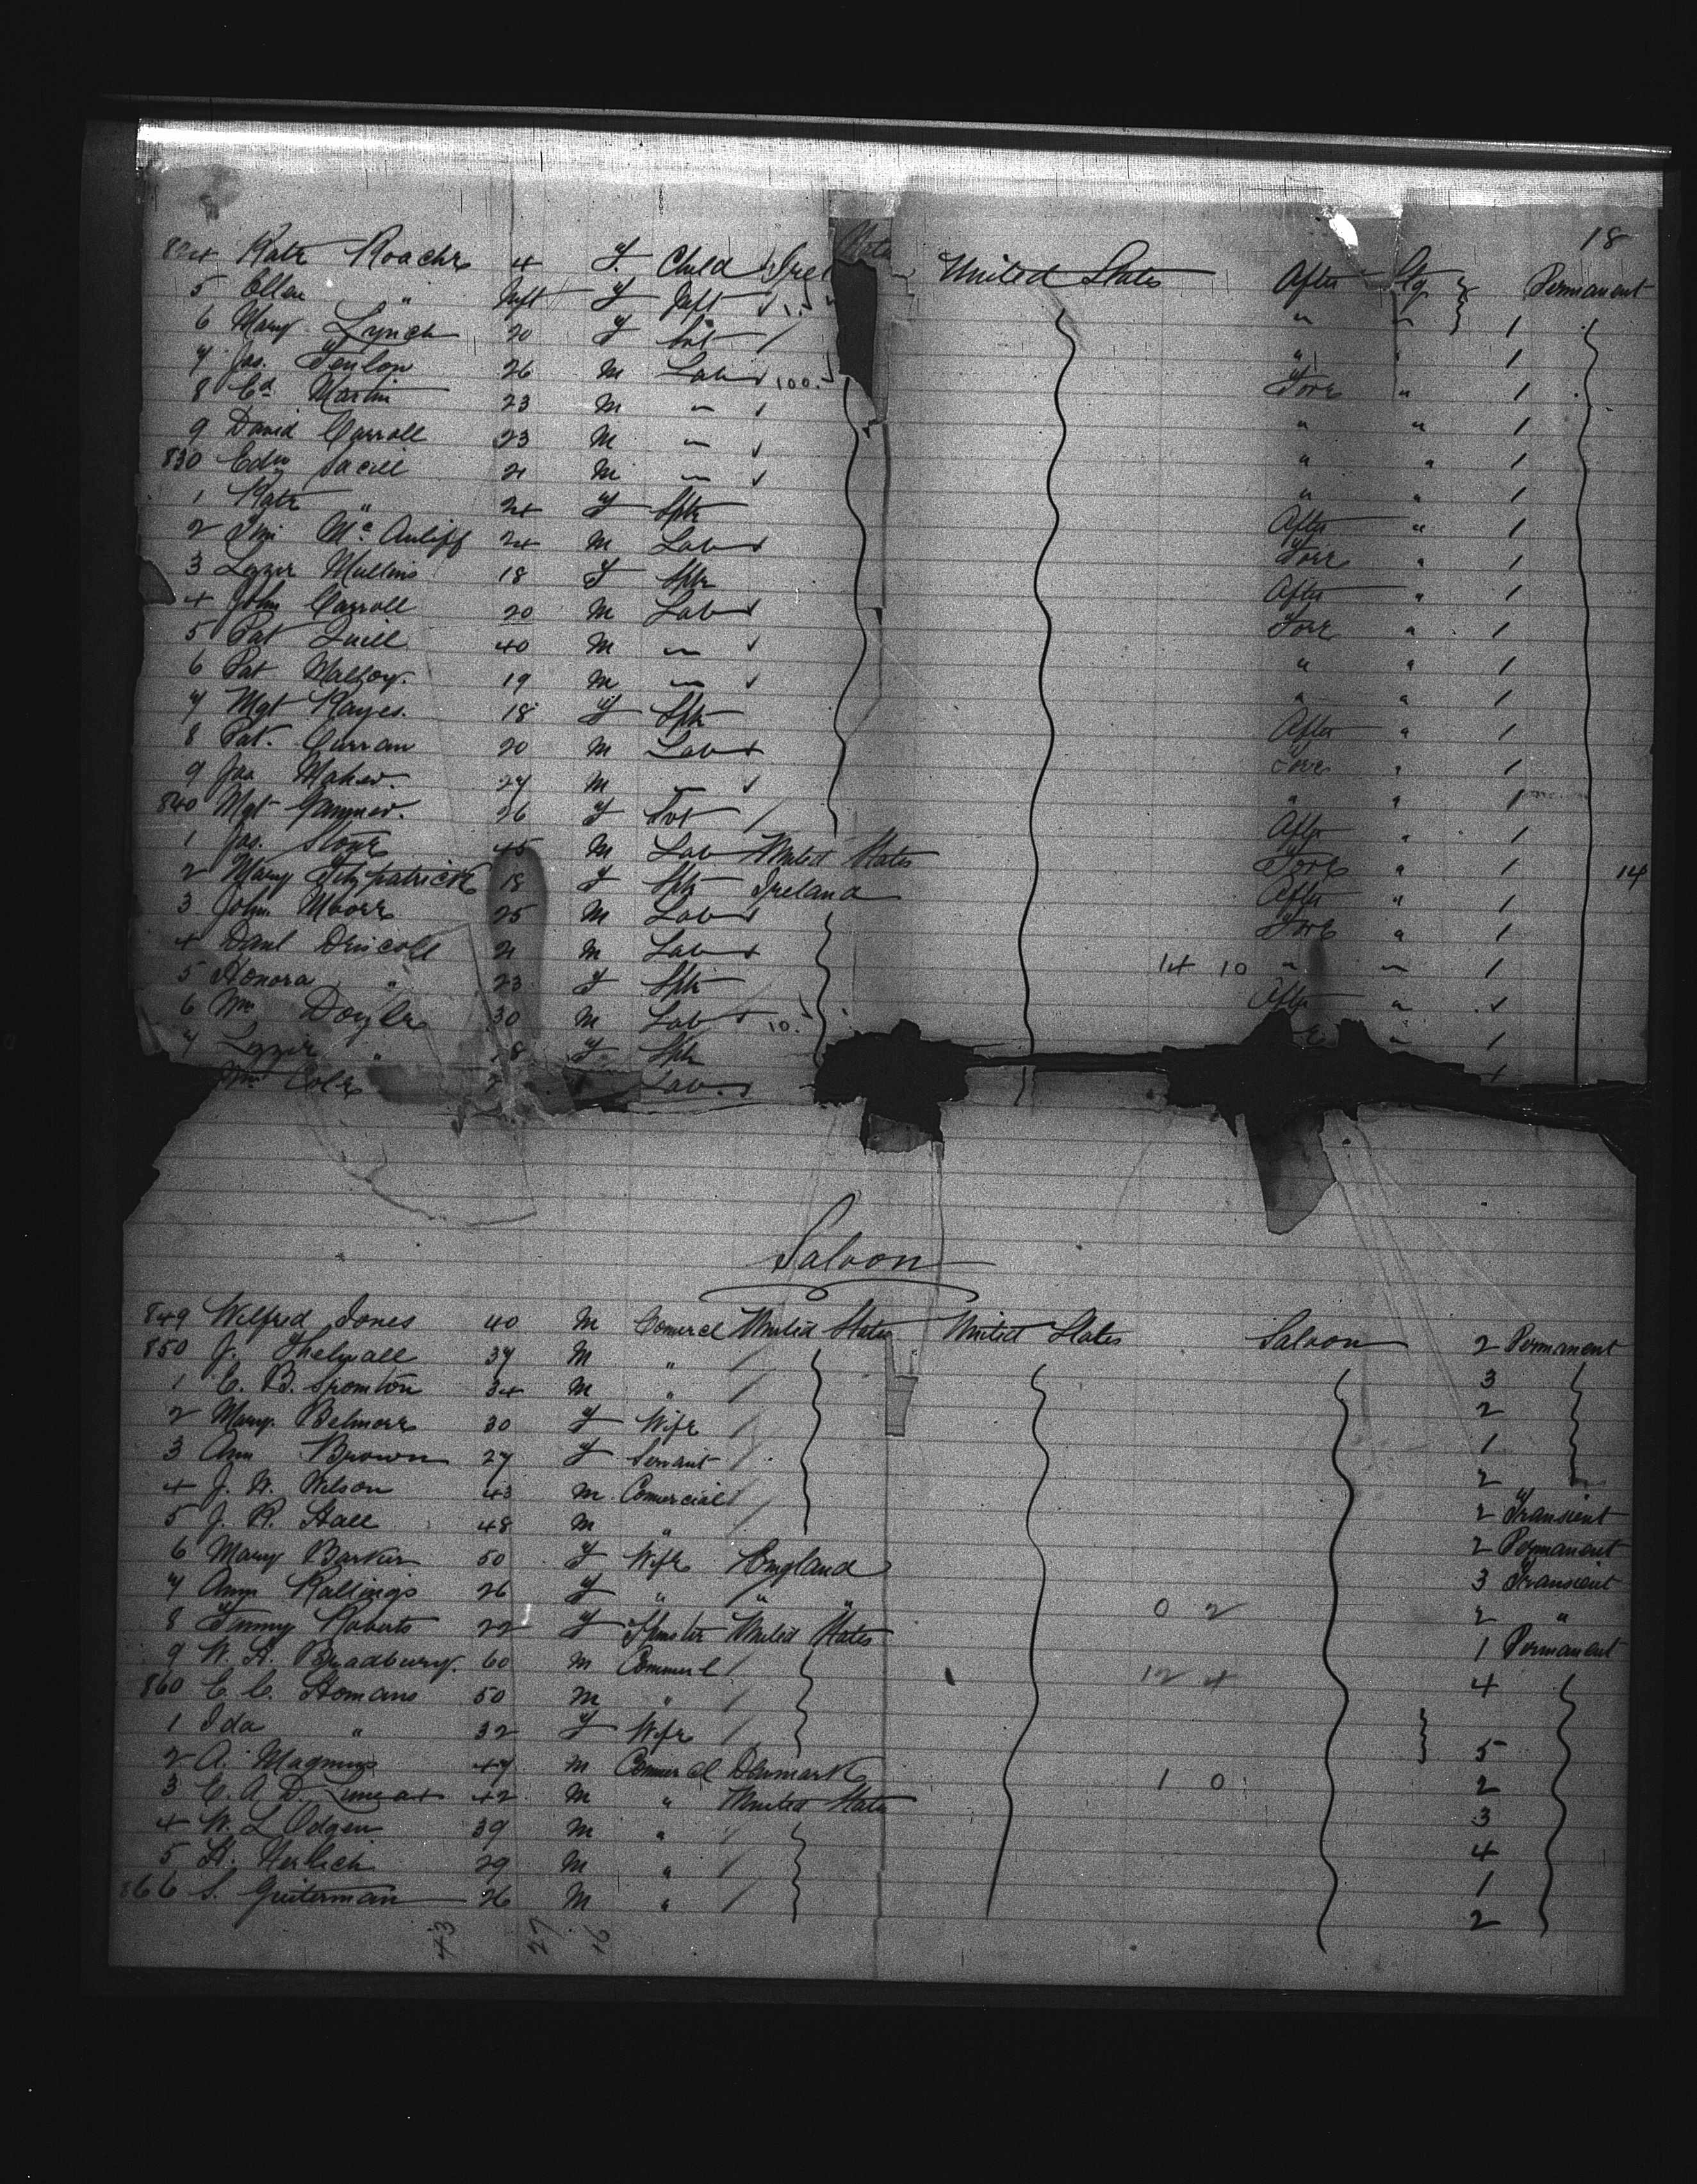 18
824 Kate Roache 4 F. Child Irel United States After Stg } Permanent
5 Ellen " Inft F Inft " " } 1
6 Mary Lynch 20 F Svt / " " 1
7 Jas. Fenlon 26 M Lab 100. Fore " 1
8 Ed Martin 23 M " " " 1
9 David Carroll 23 M " " " 1
830 Edw 21 M " " " 1
1 Kate " 24 F Sptr After " 1
2 Jno Mc Auliff 24 M Lab Fore " 1
3 Lizzie Mullins 18 F Sptr After " 1
4 John Carroll 20 M Lab Fore " 1
5 Pat Quill 40 M " " " 1
6 Pat Malloy. 19 M " " " 1
7 Mgt Hayes. 18 F Sptr After " 1
8 Pat. Curran 20 M Lab Fore " 1
9 Jas Maher. 27 M " " " 1
840 Mgt 26 F Svt / After " 1
1 Jas. Stone 45 M Lab United States Fore " 1 14
2 Mary Fitzpatrick 18 F Sptr Ireland After " 1
3 John Moore 25 M Lab Fore " 1
4 Danl Driscoll 21 M Lab 14 10 " " 1
5 Honora " 23 F Sptr After "
6 Wm Doyle 30 M Lab 10. " 1
7 Lizzie " 18 F Sptr
Wm Cole Lab.
Saloon
849 Wilfred Jones 40 M Comercl United States United States Saloon 2 Permanent
850 J. Thelwall 37 M " / 3
1 C. B. 34 M " / 2
2 Mary Belmore 30 F Wife / 1
3 Ann Brown 27 F Servant / 2 "
4 J. W. Wilson 43 M Comercial / 2 Transient
5 J. R. Hall 48 M " / 2 Permanent
6 Mary Barker 50 F Wife England 3 Transient
7 Ann Rallings 26 F " " " 0 2 2 "
8 Fanny Roberts 22 F Spinster United States 1 Permanent
9 W. H. Bradbury. 60 M Commercl / 12 4 4
860 C. C. Homans 50 M " /
1 Ida " 32 F Wife / } 5
2 A. Magnus 47 M Commercl Denmark 1 0 2
3 C. A. D. 42 M " United States 3
4 W. L Odgen 39 M " / 4
5 H. Herlich 29 M " / 1
866 S. Guiterman 26 M " / 2
43 27 16